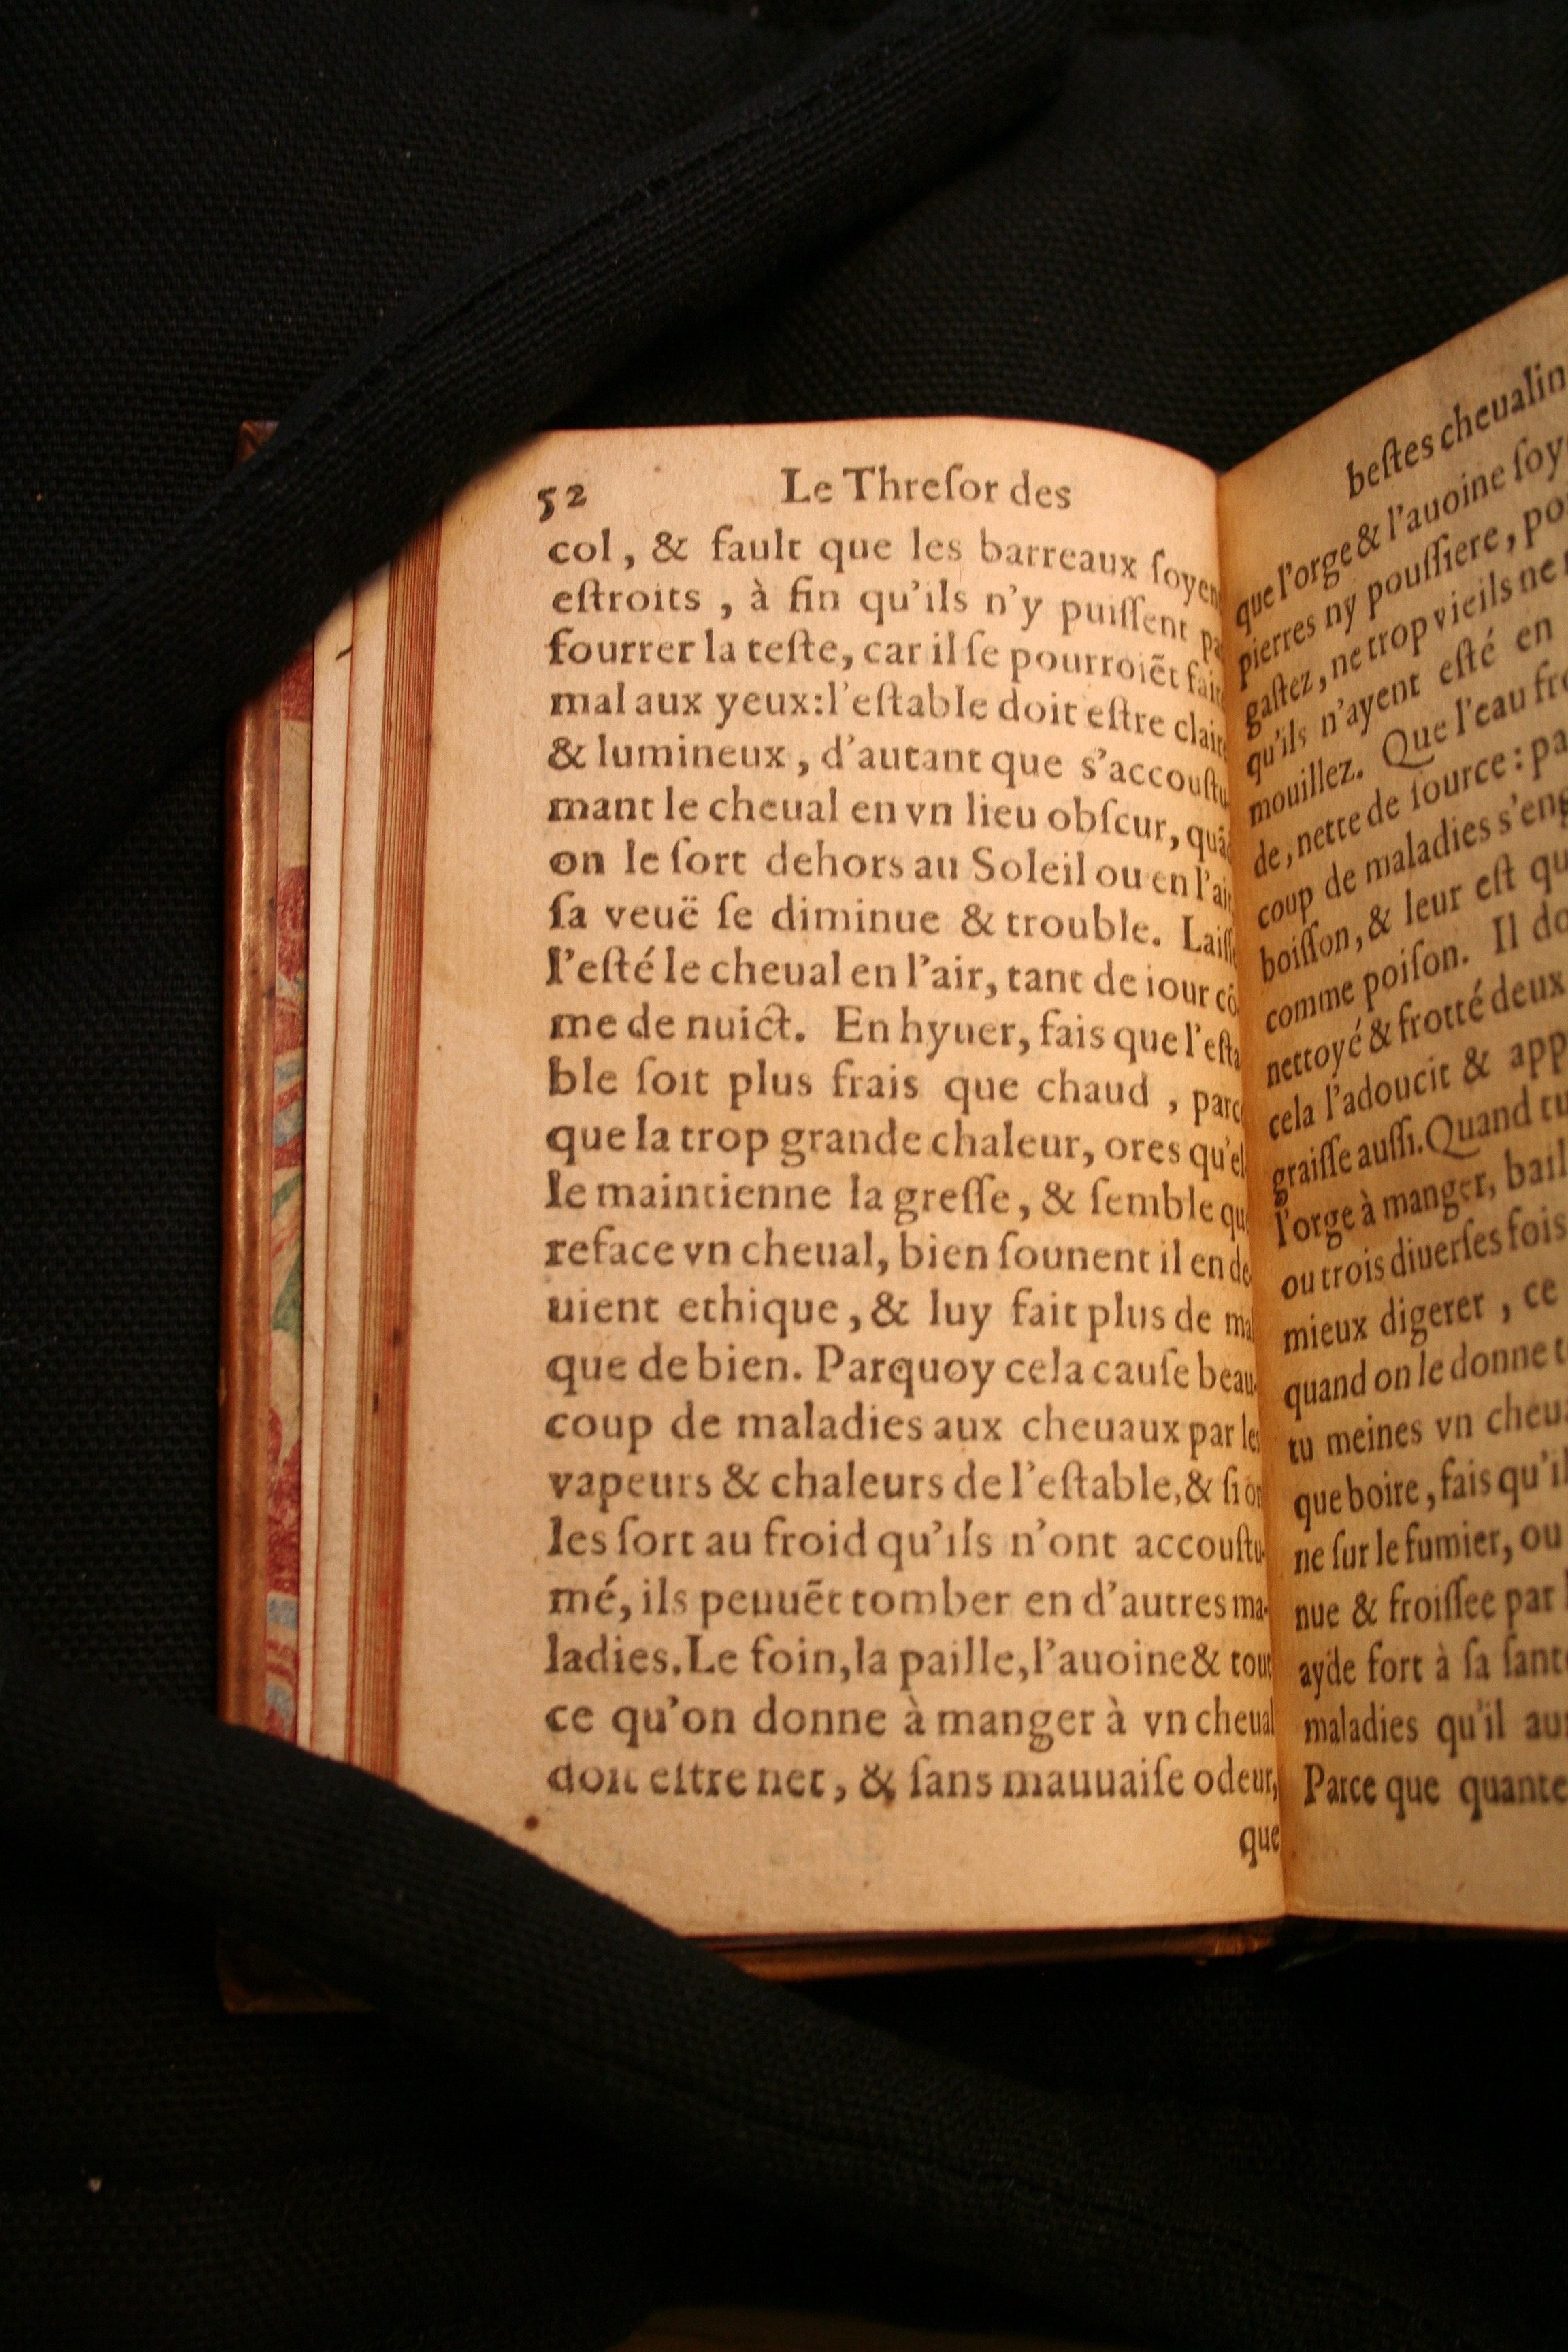 52 Le Threſor des
col, & fault que les barreaux ſoyen
eſtroits, à fin qu'ils n'y puiſſent pa
fourrer la teſte, car il ſe pourroiẽt fair
mal aux yeux: l'eſtable doit eſtre clair
& lumineux, d'autant que s'accouſtu
mant le cheual en vn lieu obſcur, quãd
on le ſort dehors au Soleil ou en l'air
ſa veuë ſe diminue & trouble. Laiſſ
l'eſté le cheual en l'air, tant de iour cõ
me de nuict. En hyuer, fais que l'eſta
ble ſoit plus frais que chaud, parc
que la trop grande chaleur, ores qu'el
le maintienne la greſſe, & ſemble qu
reface vn cheual, bien ſounent il en de
uient ethique, & luy fait plus de mal
que de bien. Parquoy cela cauſe beau-
coup de maladies aux cheuaux par les
vapeurs & chaleurs de l'eſtable, & ſi on
les ſort au froid qu'ils n'ont accouſtu-
mé, ils peuuẽt tomber en d'autres ma-
ladies. Le foin, la paille, l'auoine & tout
ce qu'on donne à manger à vn cheual
doit eſtre net, & ſans mauuaiſe odeur,
que
beſtes cheualin
que l'orge & l'auoine ſoy
pierres ny pouſſiere, po
gaſtez, ne trop vieils ne
qu'ils n'ayent eſté en
mouillez. Que l'eau fro
de, nette de ſource: pa
coup de maladies s'eng
boiſſon, & leur eſt qu
comme poiſon. Il do
nettoyé & frotté deux
cela l'adoucit & app
graiſſe auſſi. Quand tu
l'orge à manger, bail
ou trois diuerſes fois
mieux digerer, ce
quand on le donne t
tu meines vn cheua
que boire, fais qu'il
ne ſur le fumier, ou
nue & froiſſee par
ayde fort à ſa ſant
maladies qu'il au
Parce que quante